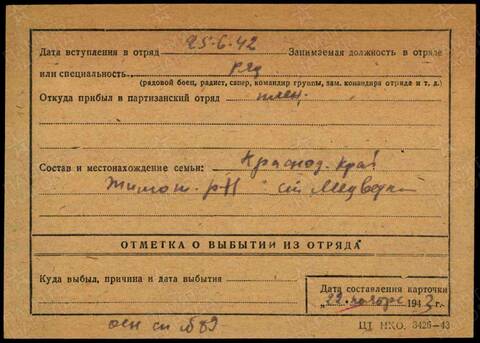 Дата вступления в отряд 25-6-42 Занимаемая должность в отряде
или специальность ряд
(рядовой боец, радист, сапер, командир группы, зам. командира отряда и т. д.)
Откуда прибыл в партизанский отряд плен.
Состав и местонахождение семьи: Краснод. край
р-н ст Медведки
ОТМЕТКА О ВЫБЫТИИ ИЗ ОТРЯДА
Куда выбыл, причина и дата выбытия
Дата составления карточки
"22" ноября 1943 г.
осн сп №89
ЦТ НКО. 3426-43